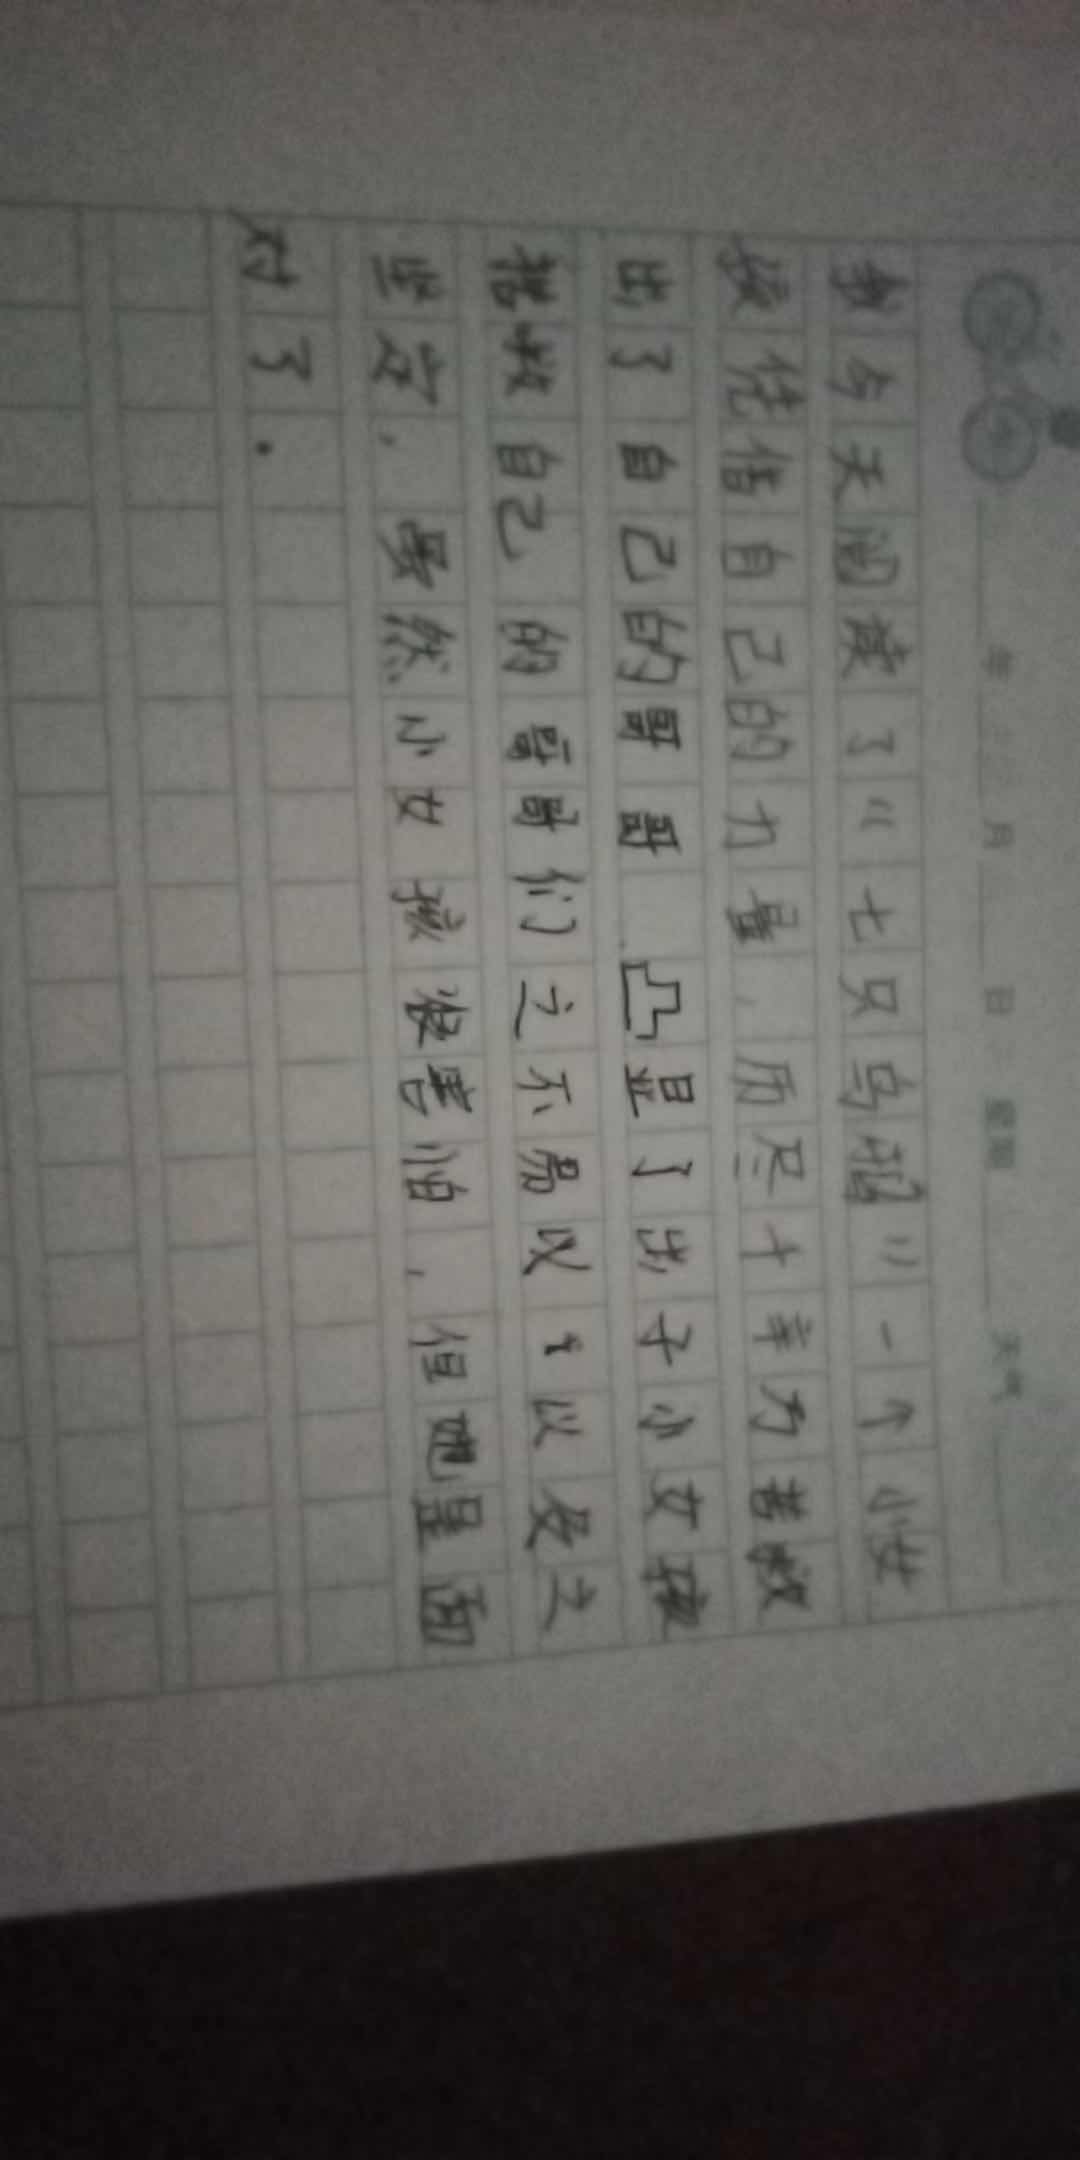 年 月 日 星期 天气
我今天阅读了“七只乌鸦”一个小女
孩凭借自己的力量，历尽千辛万苦救
出了自己的哥哥 凸显了出子小女孩
拯救自己的哥哥们之不易以 以及之
坚定，虽然小女孩很害怕，但她是面
对了.